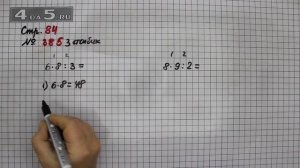 4GDZ.RU
Стр. 84
№ 385 3 столбик
1 2
6·8:3=
1 2
8·9:2=
1) 6·8=48